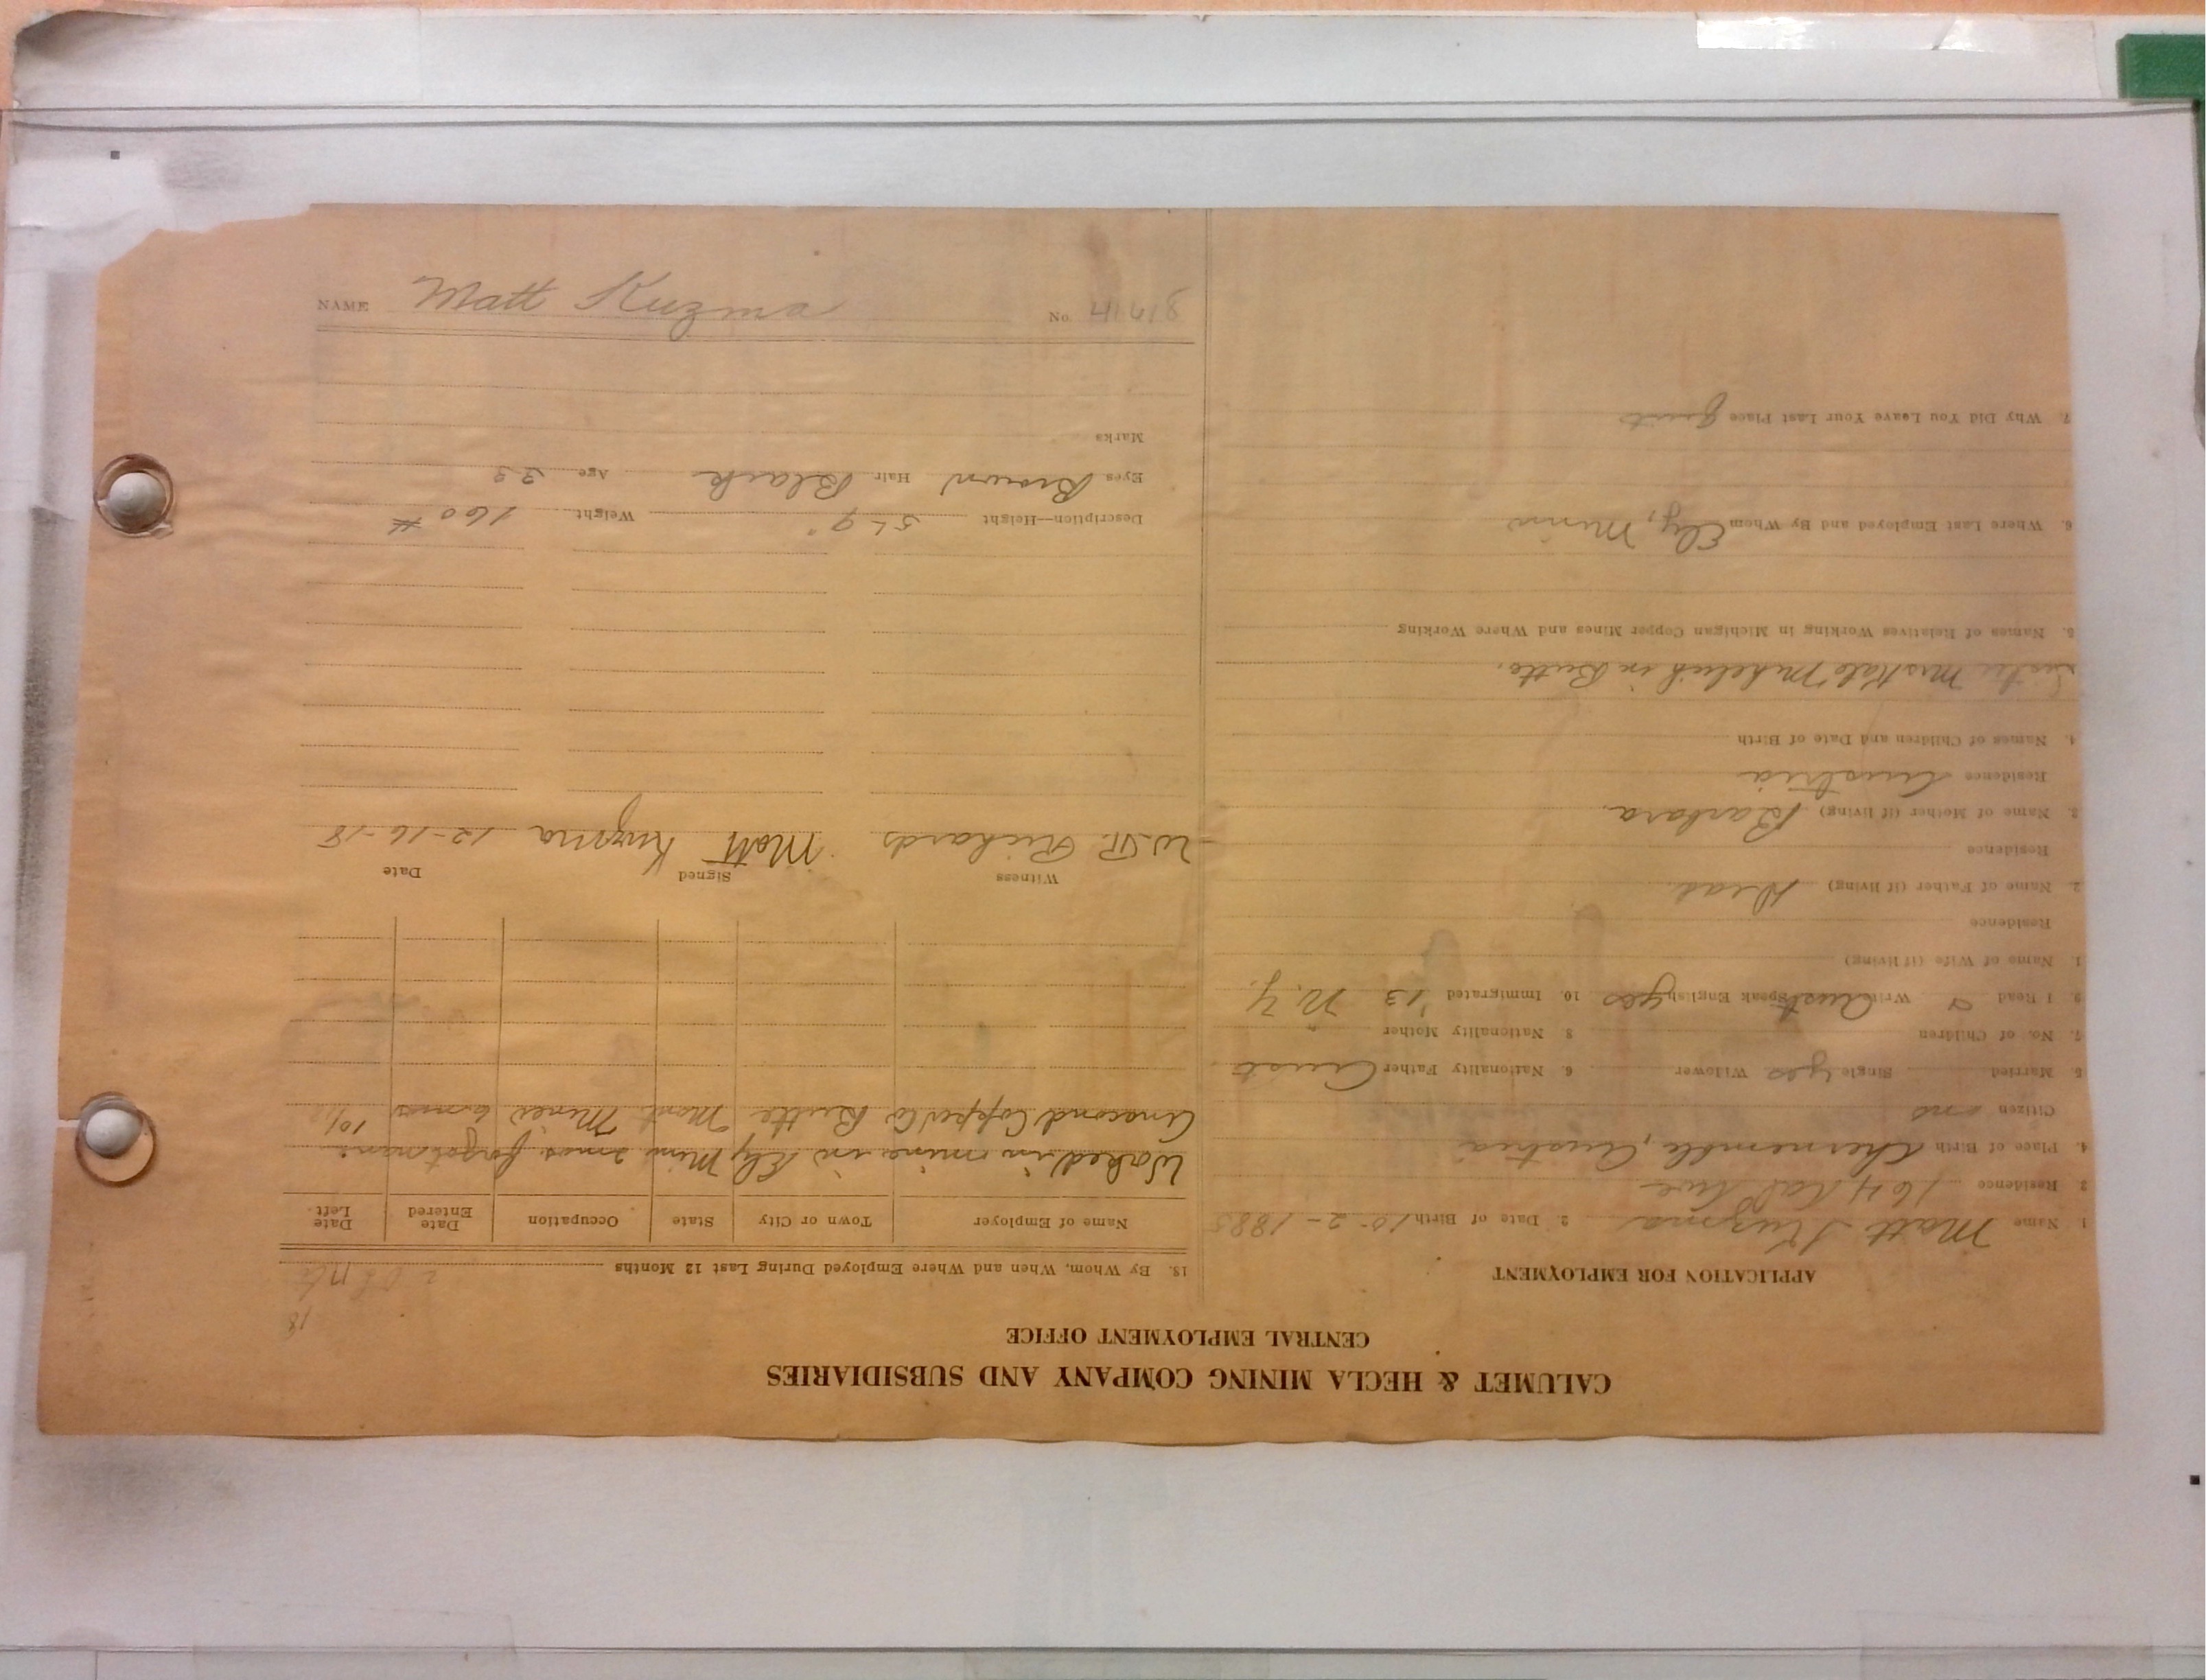 CALUMET & HECLA MINING COMPANY AND SUBSIDIARIES
CENTRAL EMPLOYMENT OFFICE
APPLICATION FOR EMPLOYMENT
1. Name Matt Kuzma 2. Date of Birth 10-2-1885
3 Residence 164 Cal Ave
4. Place of Birth Chernemble, Austria
Citizen no
5. Married Single yes Widower 6. Nationality Father Aust
7. No. of Children 8 Nationality Mother
9. I Read & Write Aust Speak English yes 10. Immigrated '13 N.Y.
1. Name of Wife (if living)
Residence
2. Name of Father (if living) Dead
Residence
3. Name of Mother (if living) Barbara
Residence Austria
4. Names of Children and Date of Birth
Sister Mrs Kate in Butte.
5. Names of Relatives Working in Michigan Copper Mines and Where Working
6. Where Last Employed and By Whom Ely, Minn
7. Why Did You Leave Your Last Place quit
18
13. By Whom, When and Where Employed During Last 12 Months
Name of Employer Town or City State Occupation Date Entered Date Left.
Worked in mine in Ely Minn 2 mos forgot name
Anacond Copper Co Butte Mont Miner 6 mos
Witness Signed Date
W.R. Richards Matt Kuzma 12-16-18
Description—Height 5 L 9" Weight 160 #
Eyes Brown Hair Black Age 33
Marks
NAME Matt Kuzma No.